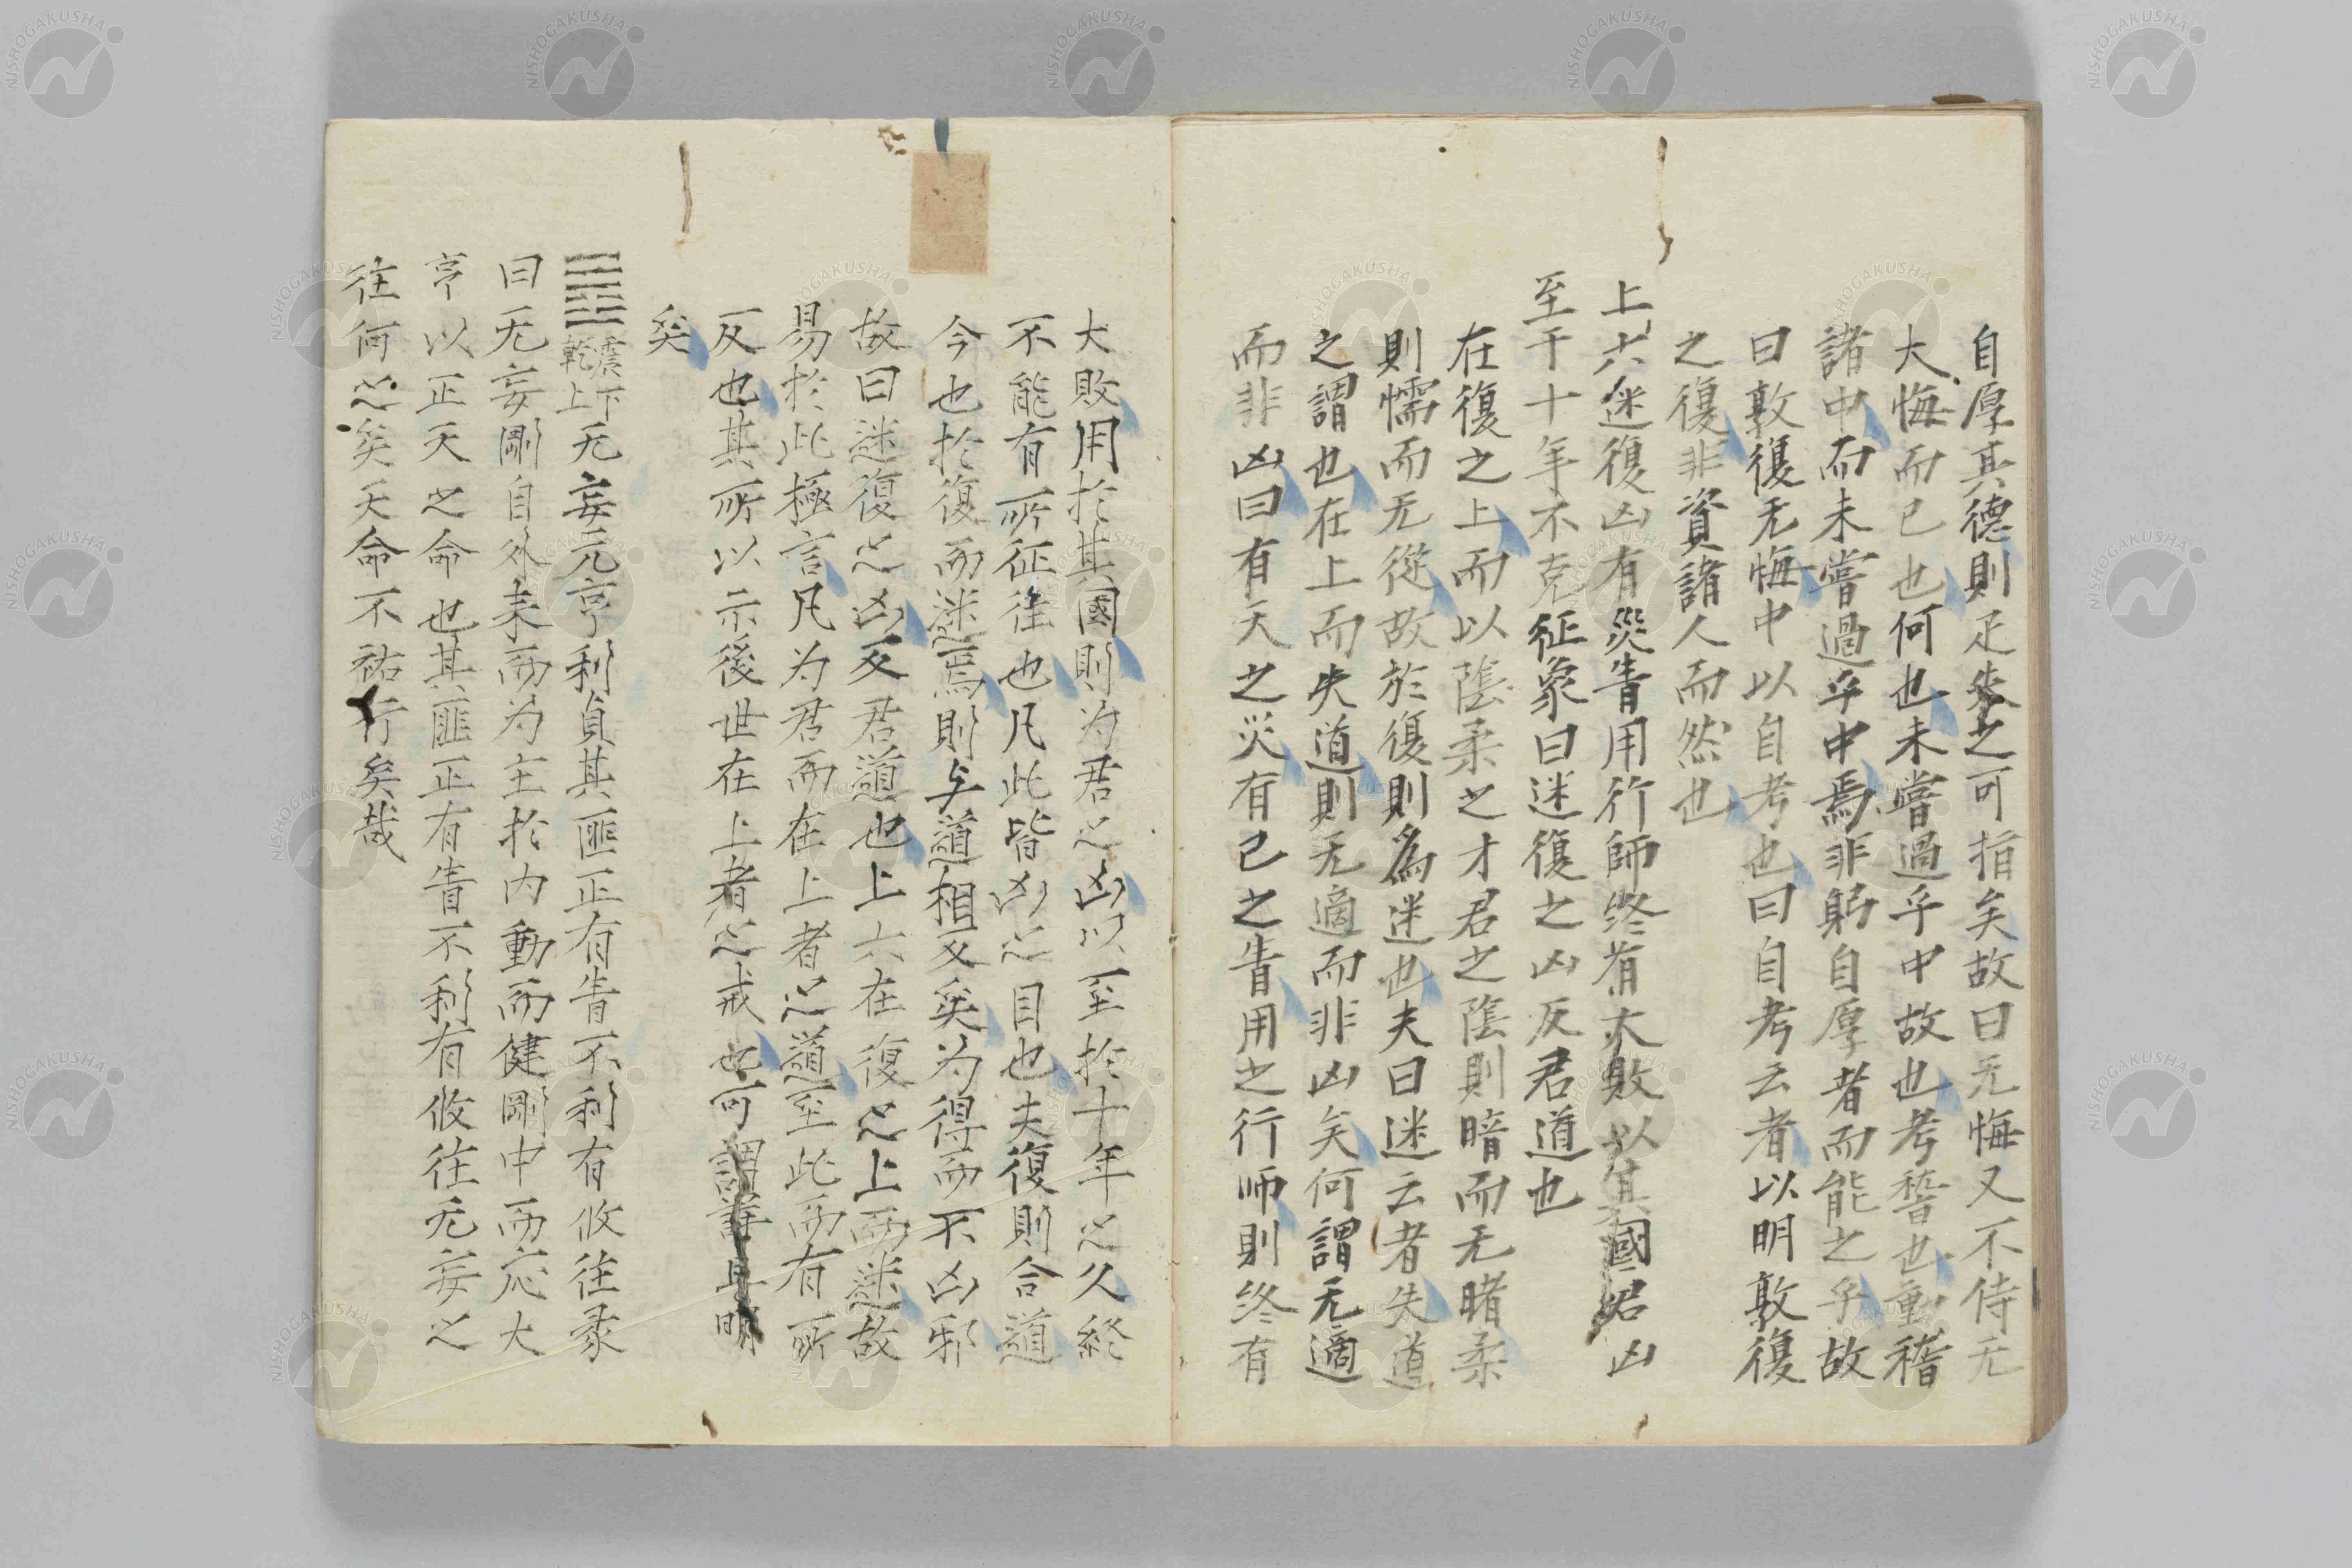 自厚其德則足矣之可指矣故曰无悔又不待无
大悔而已也何也未嘗過乎中故也考誓也動稽
諸中而未嘗過乎中焉非躬自厚者而能之乎故
曰敦復无悔中以自考也曰自考云者以明敦復
之復非資諸人而然也
上六迷復凶有災眚用行師終有大敗以其國君凶
至于十年不克征象曰迷復之凶反君道也
在復之上而以陰柔之才君之陰則暗而无睹柔
則懦而无從故於復則為迷也夫曰迷云者失道
之謂也在上而失道則无適而非凶矣何謂无適
而非凶曰有天之災有己之眚用之行师則终有
大敗用於其國則为君之凶以至於十年之久終
不能有所征往也凡此皆凶之目也夫復則合道
今也於復而迷焉則与道相反矣为得而不凶邪
故曰迷復之凶反君道也上六在復之上而迷故
易於此極言凡为君而在上者之道至此而有所
反也其所以示後世在上者之戒也可謂詳且明
矣
䷘震下乾上无妄元亨利貞其匪正有眚不利有攸往彖
曰无妄剛自外来而为主於内動而健剛中而応大
亨以正天之命也其匪正有眚不利有攸往无妄之
往何之矣天命不祐行矣哉
NISHOGAKUSHA